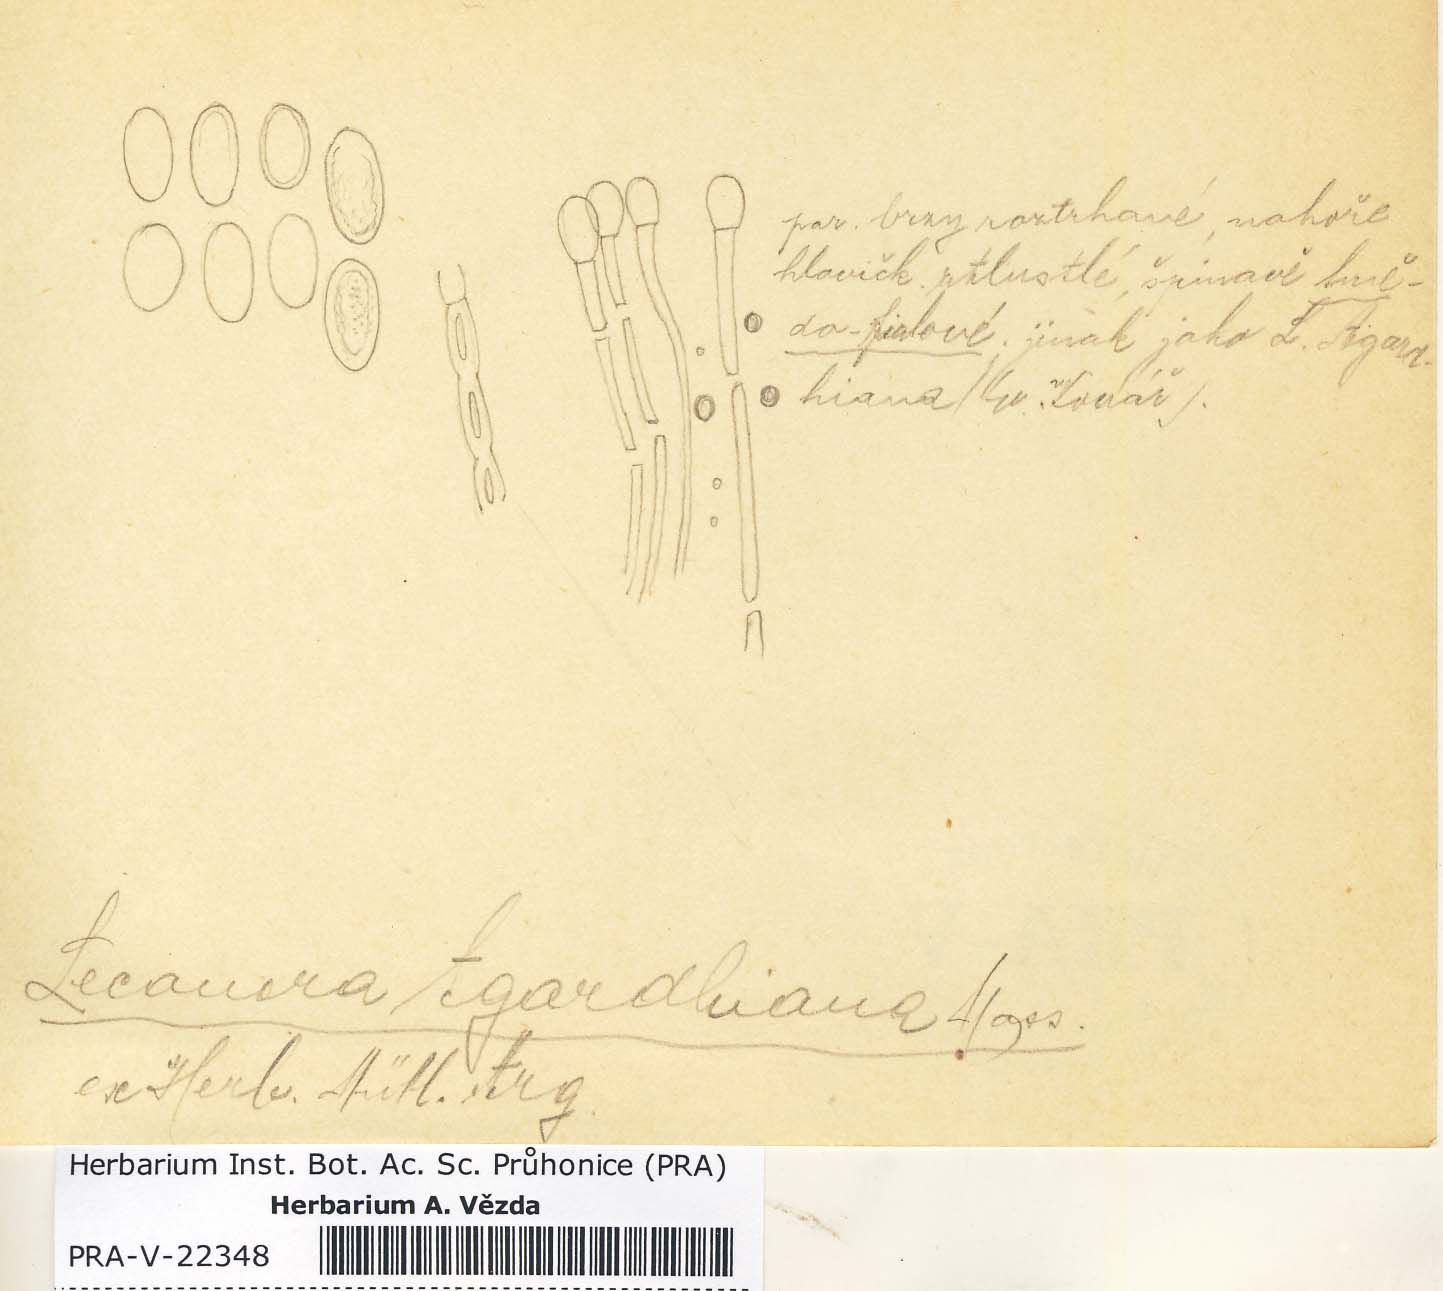 par. brzy roztrhané, nahoře
hlavičk. ztlustlé, špinavě hně-
do-fialové, jinak jako L. Agard-
hiana
Lecanora Agardhiana Mass.
ex Herb. Müll. Arg.
Herbarium Inst. Bot. Ac. Sc. Průhonice (PRA)
Herbarium A. Vězda
PRA-V-22348